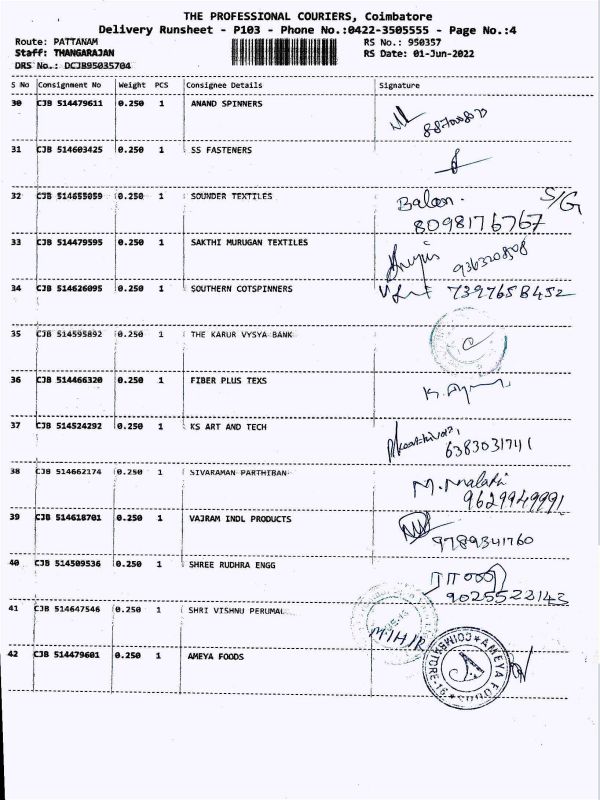 THE PROFESSIONAL COURIERS, Coimbatore
Delivery Runsheet - P103 - Phone No.:0422-3505555 - Page No.:4
Route: PATTANAM RS No.: 950357
Staff: THANGARAJAN RS Date: 01-Jun-2022
DRS No.: DCJB95035704
S No Consignment No Weight PCS Consignee Details Signature
30 CJB 514479611 0.250 1 ANAND SPINNERS
31 CJB 514603425 0.250 1 SS FASTENERS
32 CJB 514655059 0.250 1 SOUNDER TEXTILES Balan. S/G
8098176767
33 CJB 514479595 0.250 1 SAKTHI MURUGAN TEXTILES
34 CJB 514626095 0.250 1 SOUTHERN COTSPINNERS 7397658452
35 CJB 514595892 0.250 1 THE KARUR VYSYA BANK
36 CJB 514466320 0.250 1 FIBER PLUS TEXS
37 CJB 514524292 0.250 1 KS ART AND TECH
6383031741
38 CJB 514662174 0.250 1 SIVARAMAN PARTHIBAN M. Malathi
9629949991
39 CJB 514618701 0.250 1 VAJRAM INDL PRODUCTS
9789341760
40 CJB 514509536 0.250 1 SHREE RUDHRA ENGG
9025522142
41 CJB 514647546 0.250 1 SHRI VISHNU PERUMAL
MIHIR
42 CJB 514479601 0.250 1 AMEYA FOODS
AMEYA FOODS COIMBATORE-16